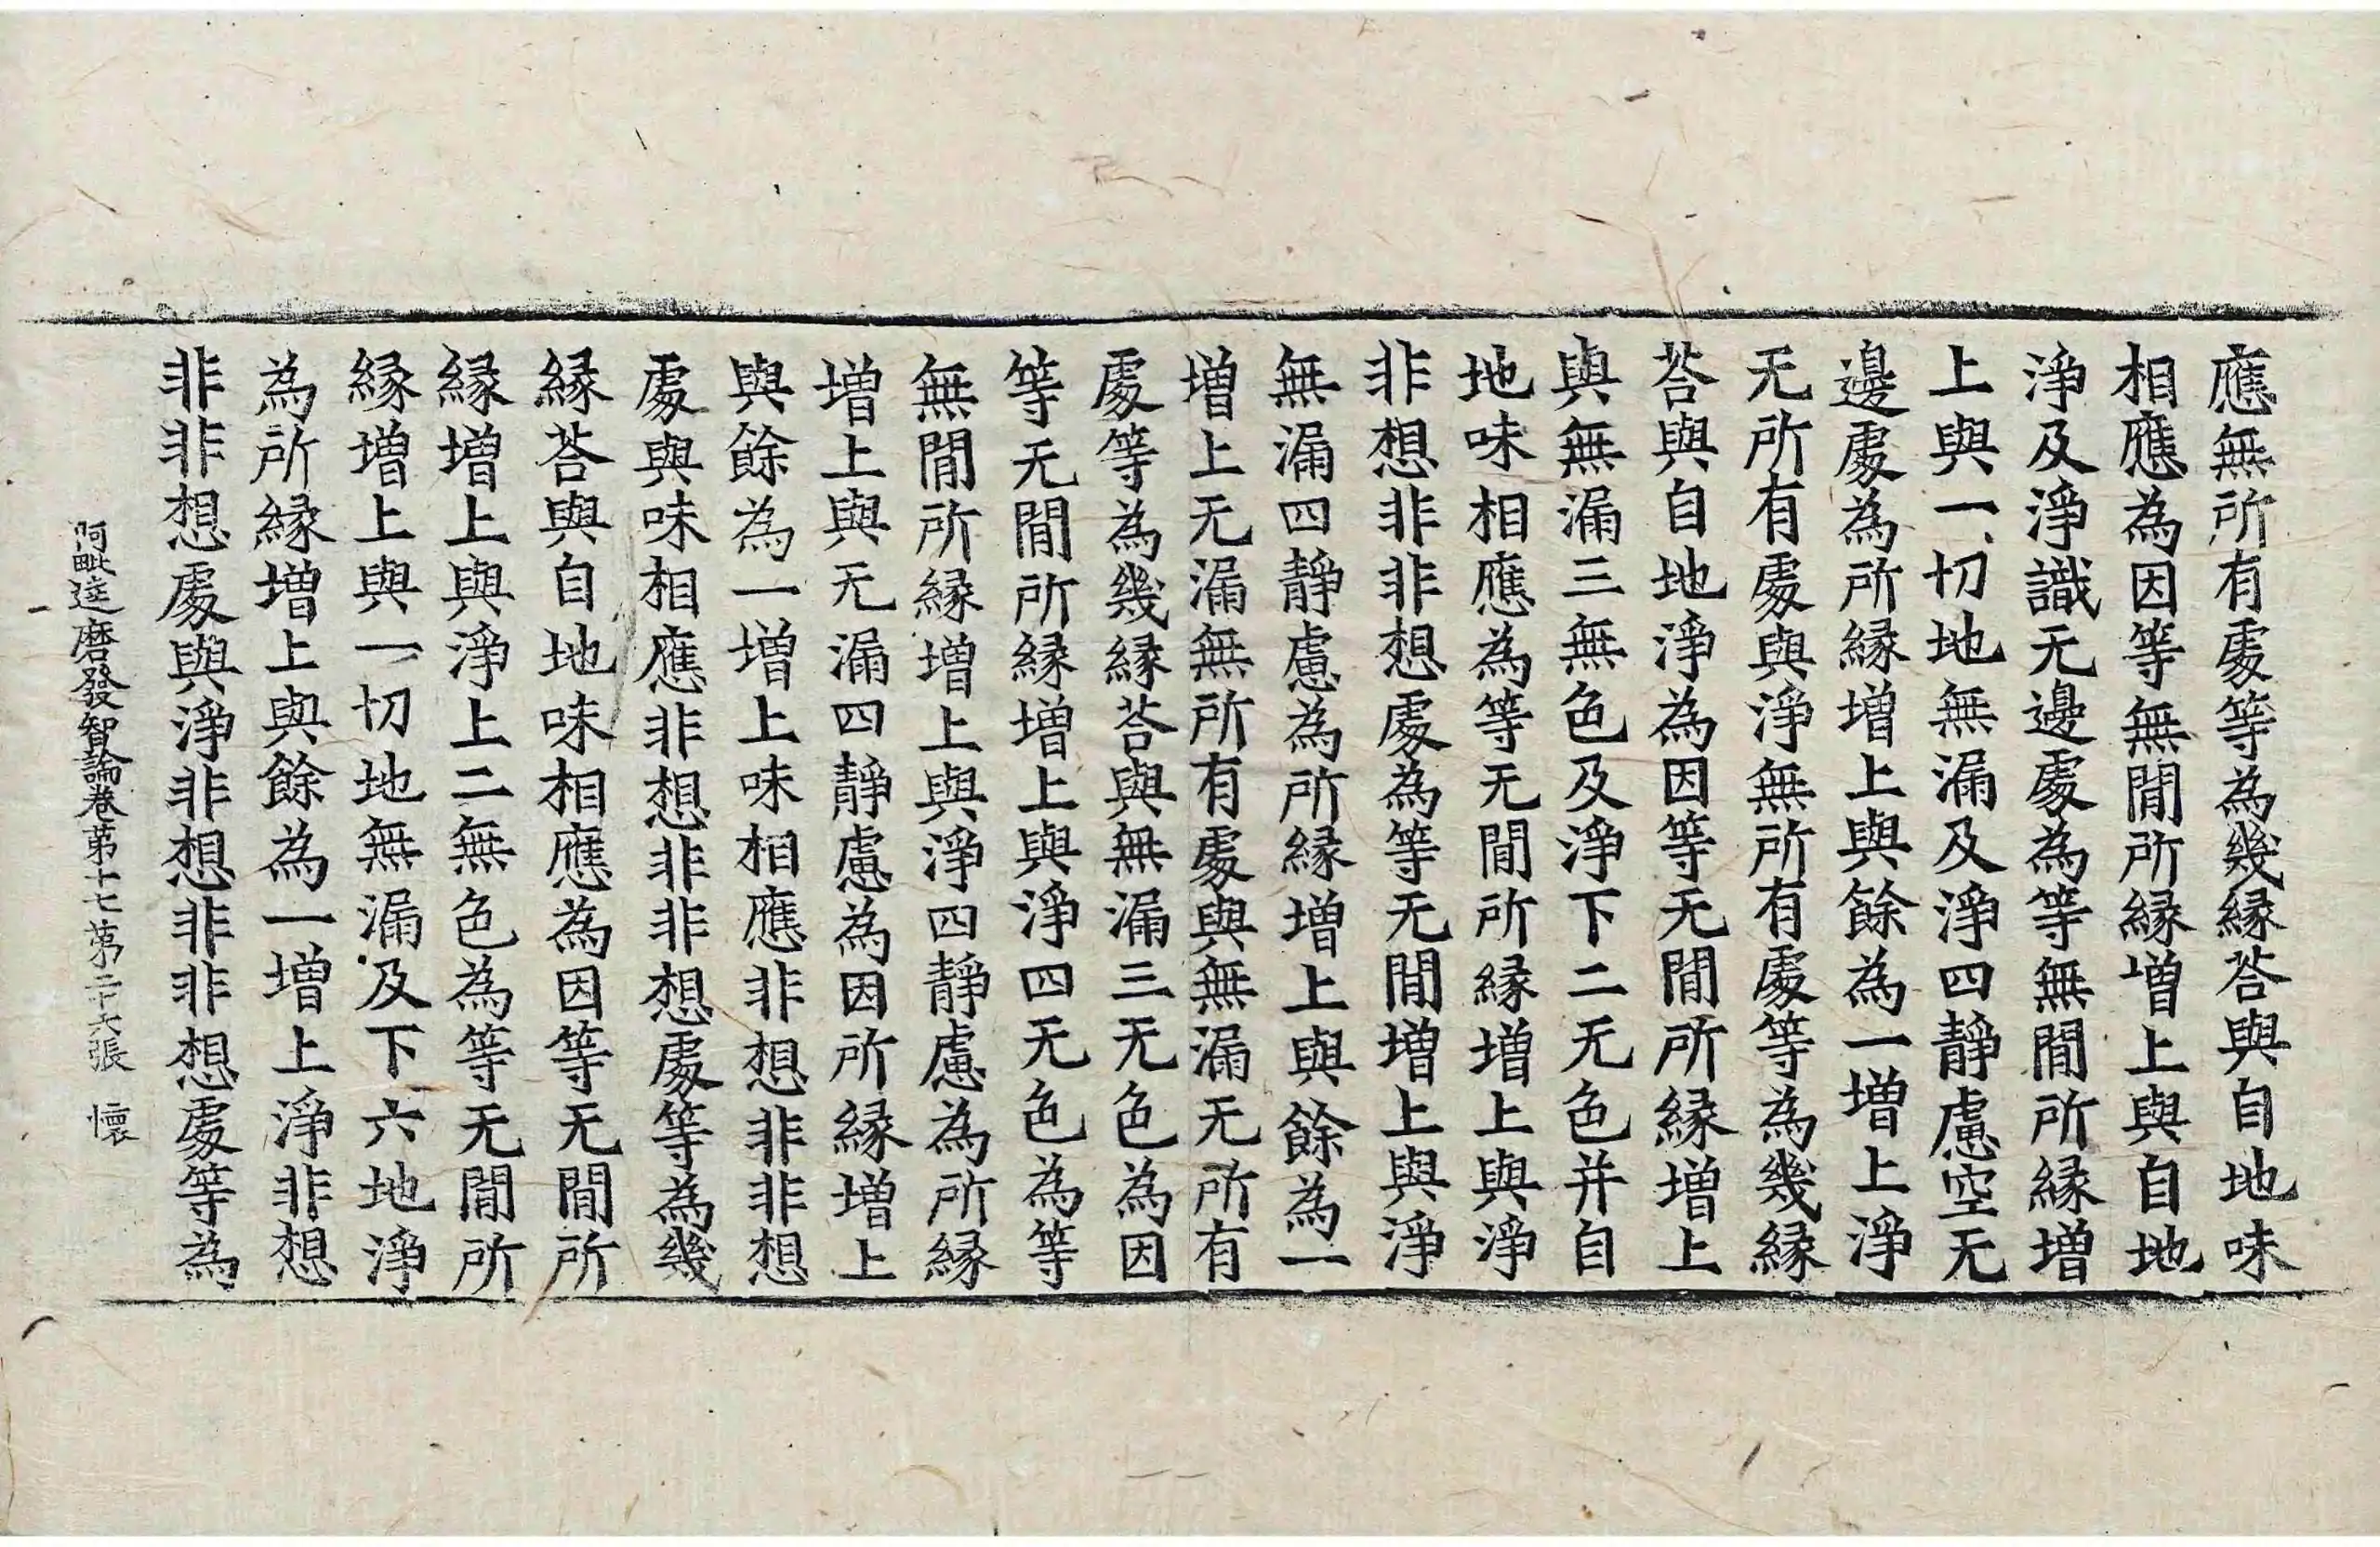 應無所有處等為幾縁荅與自地味
相應為因等無間所縁增上與自地
淨及淨識无邊處為等無間所縁增
上與一切地無漏及淨四靜慮空无
邊處為所縁增上與餘為一增上淨
无所有處與淨無所有處等為幾縁
荅與自地淨為因等无間所縁增上
與無漏三無色及淨下二无色并自
地味相應為等无間所縁增上與淨
非想非非想處為等无間增上與淨
無漏四靜慮為所縁增上與餘為一
增上无漏無所有處與無漏无所有
處等為幾縁荅與無漏三无色為因
等无間所縁增上與淨四无色為等
無間所縁增上與淨四靜慮為所縁
增上與无漏四靜慮為因所縁增上
與餘為一增上味相應非想非非想
處與味相應非想非非想處等為幾
縁荅與自地味相應為因等无間所
縁增上與淨上二無色為等无間所
縁增上與一切地無漏及下六地淨
為所縁增上與餘為一增上淨非想
非非想處與淨非想非非想處等為
阿毗達磨發智論卷第十七第二十六張 懷